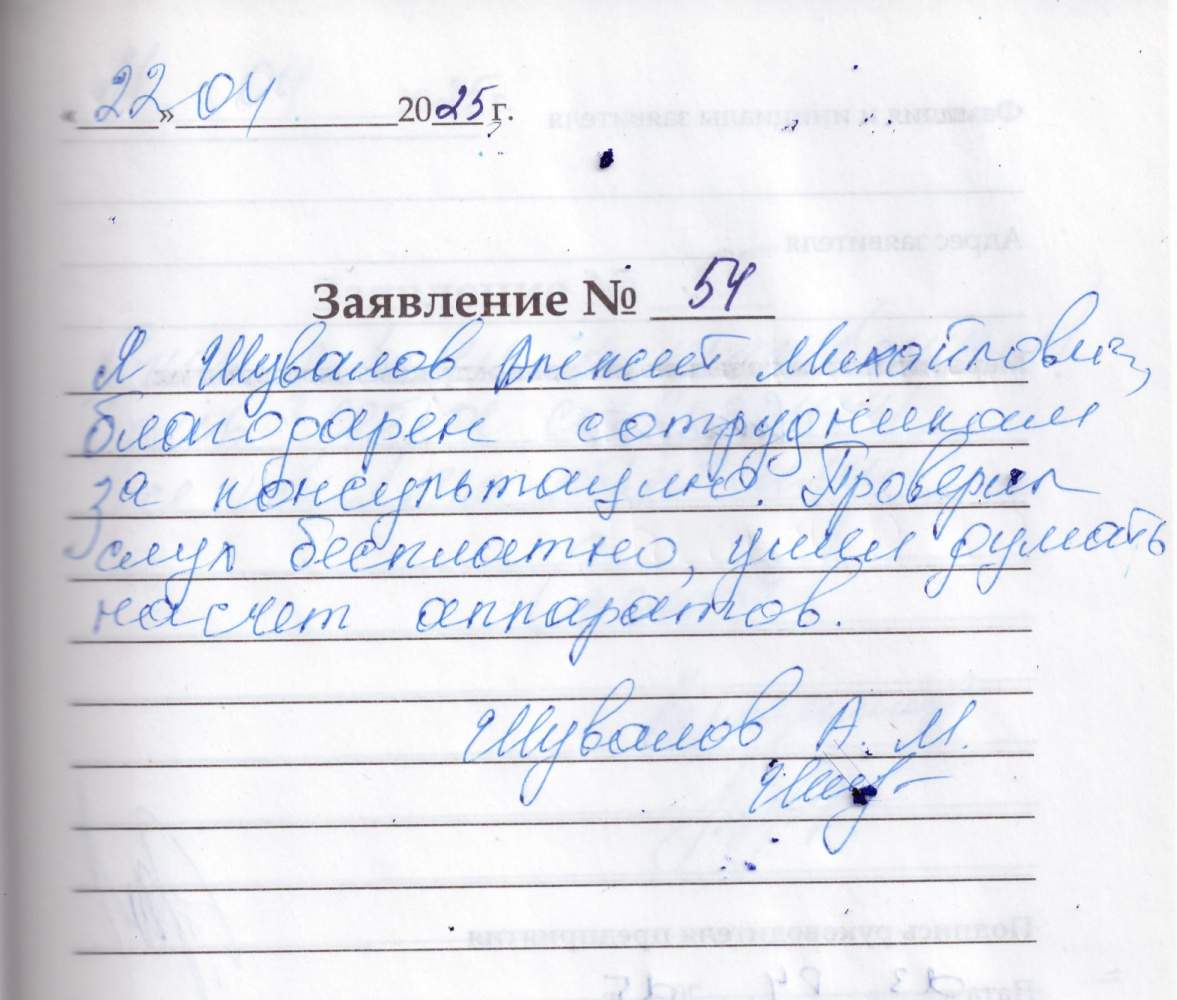 «22» 04 2025 г.
Заявление № 54
Я Шувалов Алексей Михайлович,
благодарен сотрудникам
за консультацию. Проверил
слух бесплатно, ушел думать
насчет аппаратов.
Шувалов А. М.